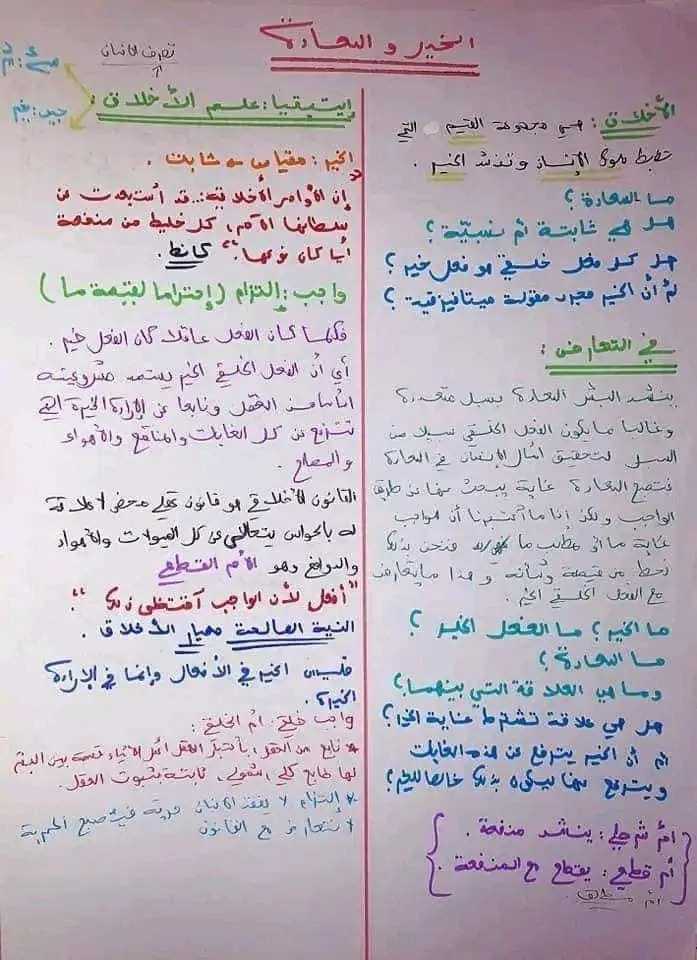 الخير و السعادة
الأخلاق: هي مجموعة القيم التي
تضبط سلوك الإنسان وتنشد الخير.
ما السعادة؟
هل هي ثابتة أم نسبيّة؟
هل كل فعل خلقي هو فعل خير؟
أم أن الخير مجرد مقولة ميتافيزيقية؟
في التعارض:
ينشد البشر السعادة بسبل متعددة
وغالبا ما يكون الفعل الخلقي سبيلا من
السبل لتحقيق آمال الإنسان في السعادة
فتصبح السعادة غاية يبحث عنها عن طريق
الواجب ولكن إذا ما اعتبرنا أن الواجب
غاية ما أي مطلب ما فنحن بذلك
نحط من قيمته وشأنه وهذا ما يتعارض
مع الفعل الخلقي الخير.
ما الخير؟ ما الفعل الخير؟
ما السعادة؟
وما هي العلاقة التي بينهما؟
هل هي علاقة تشترط غاية الخير؟
أم أن الخير يترفع عن هذه الغايات
ويترفع عنها ليكون بذلك خالصا للخير؟
أمر شرطي: ينشد منفعة.
أمر قطعي: يقطع مع المنفعة.
أمر مطلق.
تصرف الإنسان
إيتيقيا: علم الأخلاق:
الخير: مقياس ثابت.
"إن الأوامر الأخلاقية... قد استبعدت من
سلطانها الآمر، كل خليط من منفعة
أيا كان نوعها." كانط.
واجب: إلتزام (إحتراما لقيمة ما)
فكلما كان الفعل عاقلا كان الفعل خير.
أي أن الفعل الخلقي الخير يستمد مشروعيته
أساسا من العقل ونابعا عن الإرادة الخيرة التي
تترفع عن كل الغايات والمنافع والأهواء
والمصالح.
القانون الأخلاقي هو قانون عقلي محض لا علاقة
له بالحواس يتعالى عن كل الميولات والأهواء
والدوافع وهو الأمر القطعي
"أفعل لأن الواجب اقتضى ذلك".
النية الصالحة معيار الأخلاق.
فليس الخير في الأفعال وإنما في الإرادة
الخيرة.
واجب خلقي: أمر الخلقي:
* نابع من العقل، باعتبار العقل أعدل الأشياء قسمة بين البشر
لها طابع كلي، شمولي، ثابتة بثبوت العقل.
* إلتزام لا يفقد الإنسان حرية فيصبح الحرية
لا تتعارض مع القانون